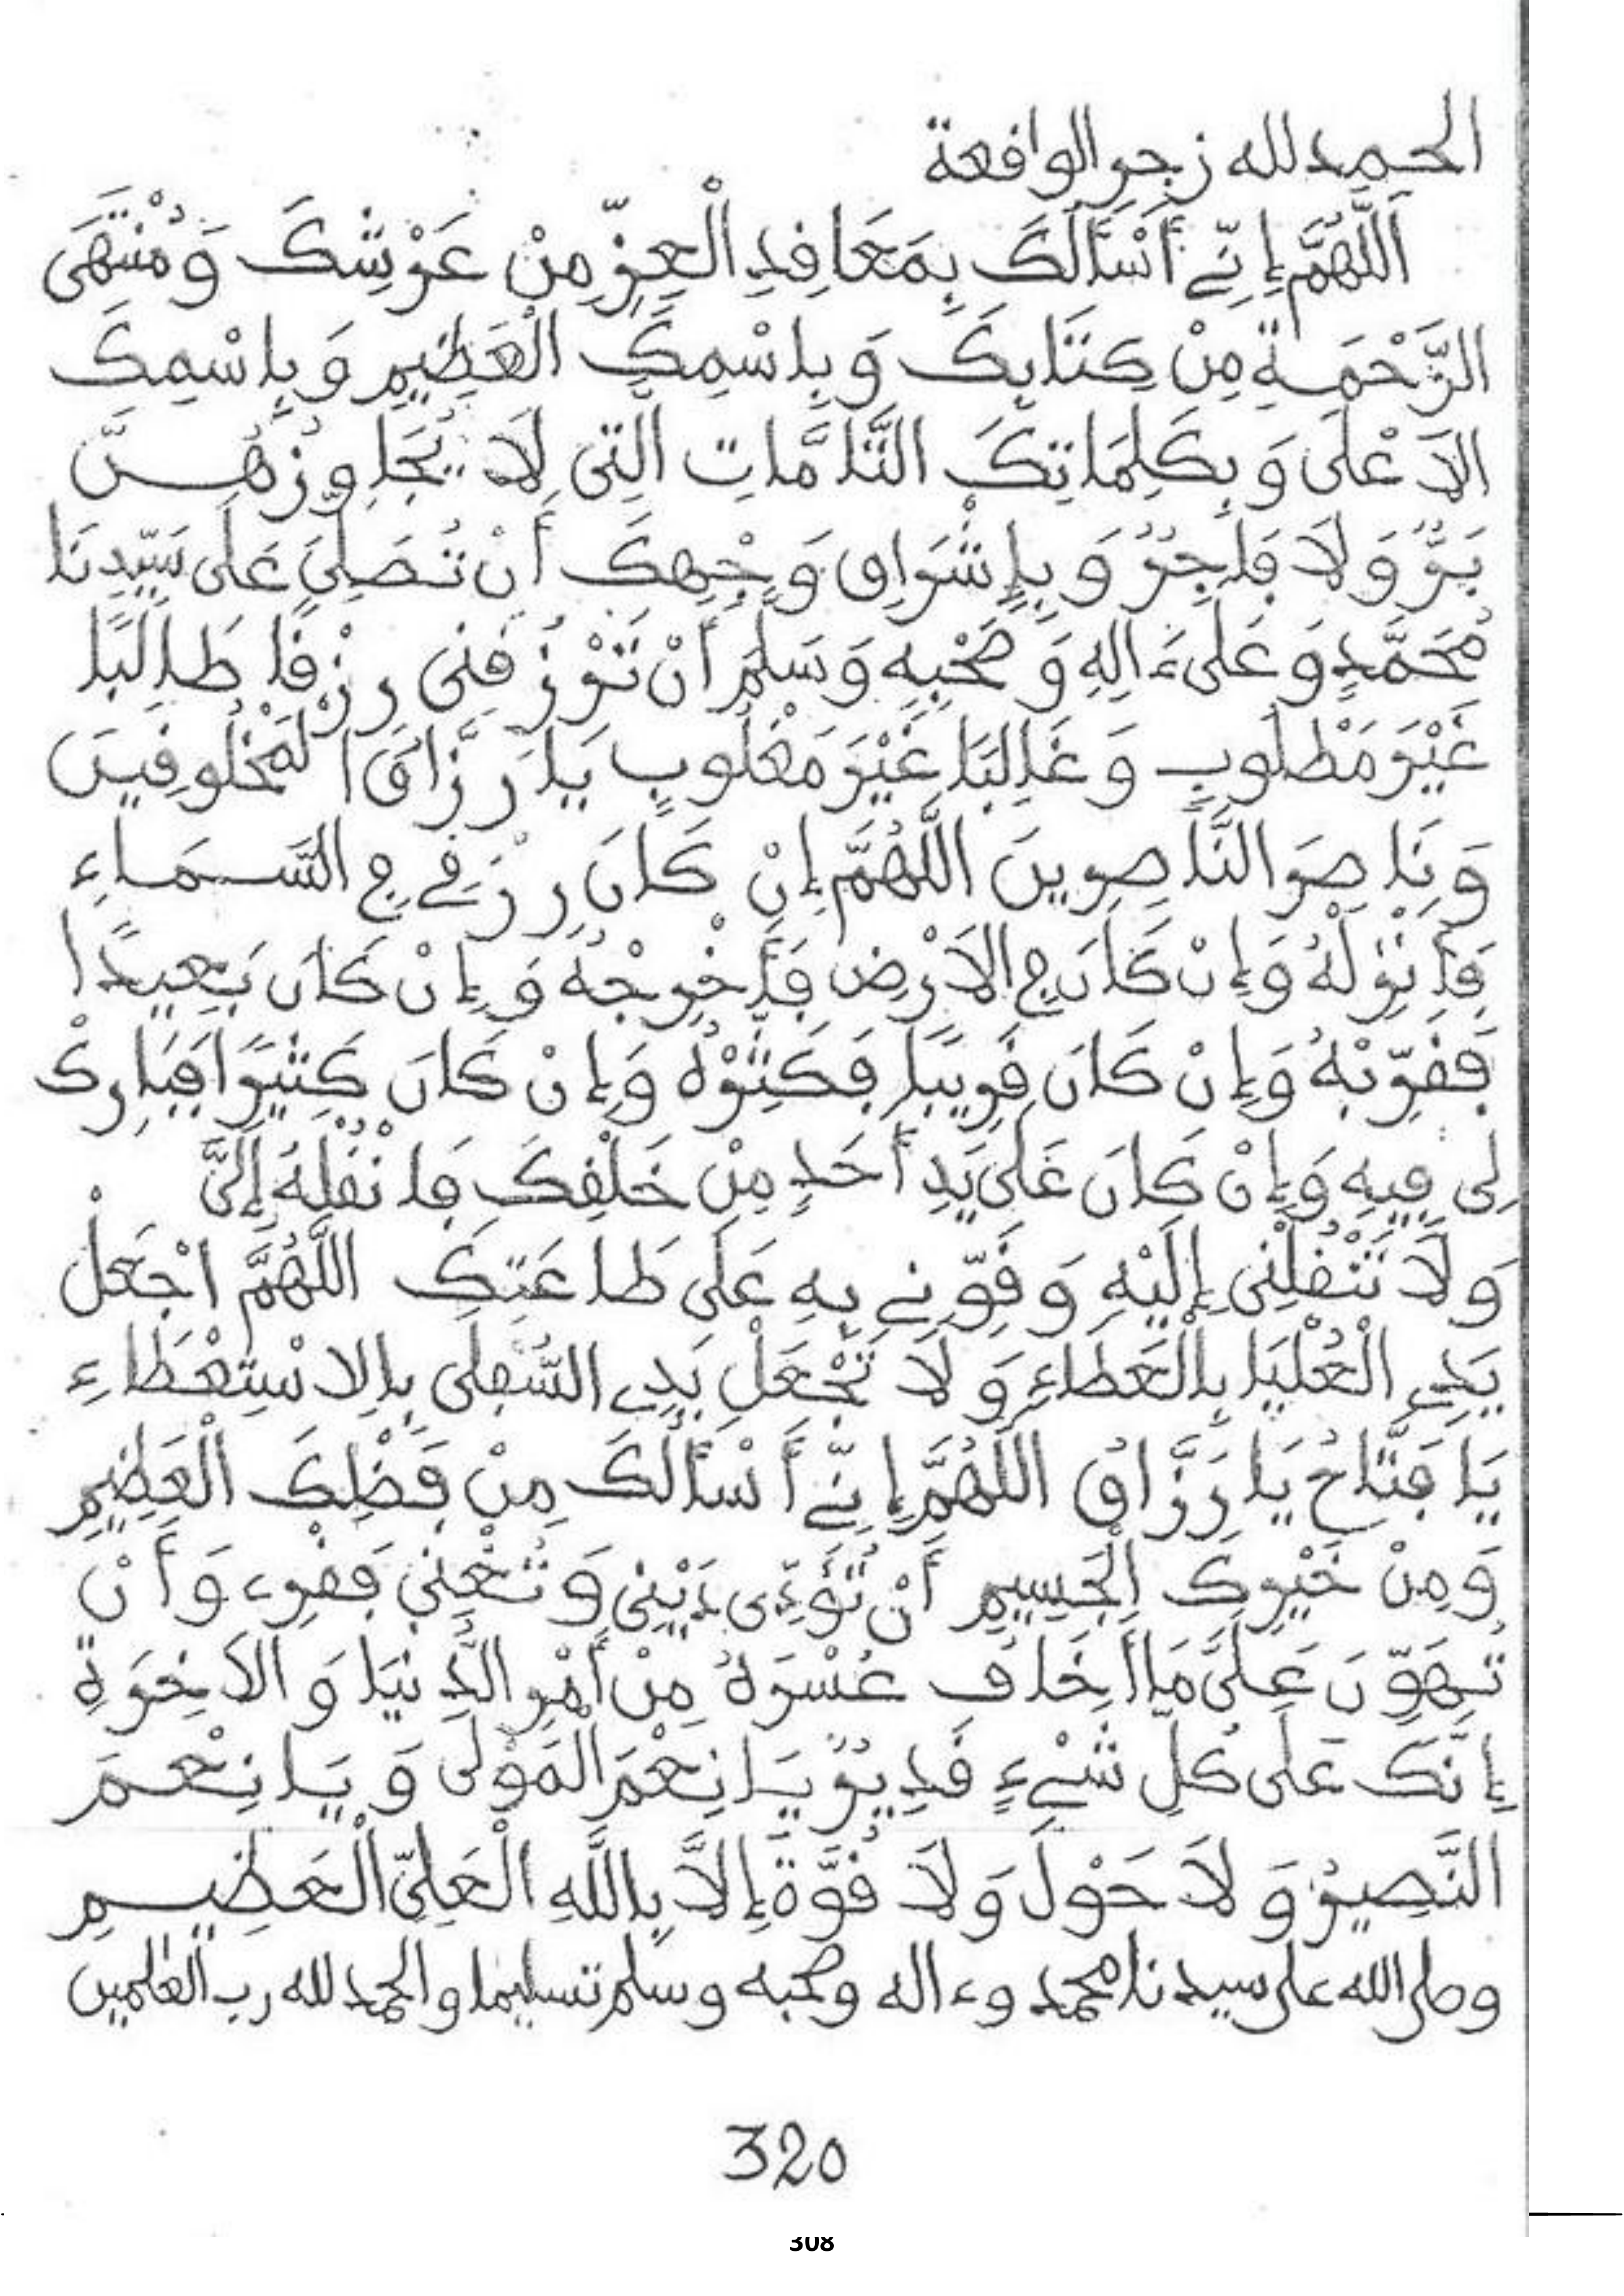 الحمد لله زجر الواقعة
اَللَّهُمَّ إِنِّي أَسْأَلُكَ بِمَعَاقِدِ الْعِزِّ مِنْ عَرْشِكَ وَمُنْتَهَى
الرَّحْمَةِ مِنْ كِتَابِكَ وَبِاسْمِكَ الْعَظِيمِ وَبِاسْمِكَ
الاَعْلَى وَبِكَلِمَاتِكَ التَّامَّاتِ التِي لَا يُجَاوِزُهُنَّ
بَرٌّ وَلَا فَاجِرٌ وَبِإِشْرَاقِ وَجْهِكَ أَنْ تُصَلِّيَ عَلَى سَيِّدِنَا
مُحَمَّدٍ وَعَلَى ءَالِهِ وَصَحْبِهِ وَسَلِّمْ أَنْ تَرْزُقَنِي رِزْقًا طَالِبًا
غَيْرَ مَطْلُوبٍ وَغَالِبًا غَيْرَ مَغْلُوبٍ يَا رَزَّاقَ الْمَخْلُوقِينَ
وَنَاصِرَ النَّاصِرِينَ اللَّهُمَّ إِنْ كَانَ رِزْقِي فِي السَّمَاءِ
فَأَنْزِلْهُ وَإِنْ كَانَ فِي الاَرْضِ فَأَخْرِجْهُ وَإِنْ كَانَ بَعِيدًا
فَقَرِّبْهُ وَإِنْ كَانَ قَرِيبًا فَكَثِّرْهُ وَإِنْ كَانَ كَثِيرًا فَبَارِكْ
لِي فِيهِ وَإِنْ كَانَ عَلَى يَدِ أَحَدٍ مِنْ خَلْقِكَ فَانْقُلْهُ إِلَيَّ
وَلَا تَنْقُلْنِي إِلَيْهِ وَقَوِّنِي بِهِ عَلَى طَاعَتِكَ اللَّهُمَّ اجْعَلْ
يَدِي الْعُلْيَا بِالْعَطَاءِ وَلَا تَجْعَلْ يَدِي السُّفْلَى بِالاسْتِعْطَاءِ
يَا فَتَّاحُ يَا رَزَّاقُ اللَّهُمَّ إِنِّي أَسْأَلُكَ مِنْ فَضْلِكَ الْعَظِيمِ
وَمِنْ خَيْرِكَ الْجَسِيمِ أَنْ تُؤَدِّيَ دَيْنِي وَتُغْنِيَ فَقْرِي وَأَنْ
تُهَوِّنَ عَلَيَّ مَا أَخَافُ عُسْرَهُ مِنْ أَمْرِ الدُّنْيَا وَالاَخِرَةِ
إِنَّكَ عَلَى كُلِّ شَيْءٍ قَدِيرٌ يَا نِعْمَ الْمَوْلَى وَيَا نِعْمَ
النَّصِيرُ وَلَا حَوْلَ وَلَا قُوَّةَ إِلَّا بِاللَّهِ الْعَلِيِّ الْعَظِيمِ
وصلى الله على سيدنا محمد وءاله وصحبه وسلم تسليما والحمد لله رب العالمين
320
308